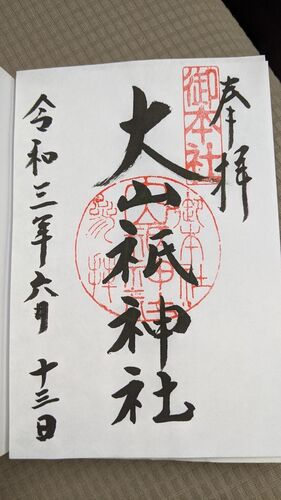 奉拝
御本社
大山祇神社
令和三年六月十三日